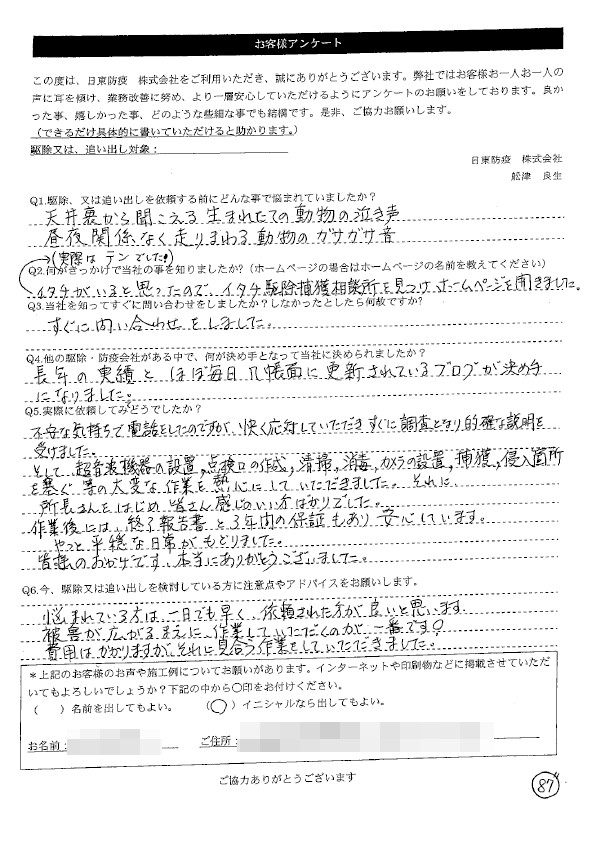 お客様アンケート
この度は、日東防疫 株式会社をご利用いただき、誠にありがとうございます。弊社ではお客様お一人お一人の
声に耳を傾け、業務改善に努め、より一層安心していただけるようにアンケートのお願いをしております。良か
った事、嬉しかった事、どのような些細な事でも結構です。是非、ご協力お願いします。
（できるだけ具体的に書いていただけると助かります。）
駆除又は、追い出し対象：
日東防疫 株式会社
舩津 良生
Q1.駆除、又は追い出しを依頼する前にどんな事で悩まれていましたか？
天井裏から聞こえる生まれたての動物の泣き声
昼夜関係なく走りまわる動物のガサガサ音
（実際は テンでした!）
Q2.何がきっかけで当社の事を知りましたか?（ホームページの場合はホームページの名前を教えてください）
イタチがいると思ったので、イタチ駆除捕獲相談所を見つけホームページを開きました。
Q3.当社を知ってすぐに問い合わせをしましたか？しなかったとしたら何故ですか？
すぐに問い合わせをしました。
Q4.他の駆除・防疫会社がある中で、何が決め手となって当社に決められましたか？
長年の実績と ほぼ毎日几帳面に更新されているブログが決め手
になりました。
Q5.実際に依頼してみどうでしたか？
不安な気持ちで電話をしたのですが、快く応対していただきすぐに調査となり的確な説明を
受けました。
そして 超音波機器の設置,点検口の作成,清掃,消毒,カメラの設置,捕獲,侵入箇所
を塞ぐ 等の大変な作業を熱心にしていただきました。それに
所長さんをはじめ 皆さん感じのいい方ばかりでした。
作業後には、終了報告書と3年間の保証もあり安心しています。
やっと平穏な日常がもどりました。
皆様のおかげです。本当にありがとうございました。
Q6.今、駆除又は追い出しを検討している方に注意点やアドバイスをお願いします。
悩まれている方は一日でも早く、依頼された方が良いと思います
被害が広がるまえに、作業していただくのが一番です!
費用はかかりますが、それに見合う作業をしていただきました。
＊上記のお客様のお声や施工例についてお願いがあります。インターネットや印刷物などに掲載させていただ
いてもよろしいでしょうか？下記の中から○印をお付けください。
（ ）名前を出してもよい。 （○）イニシャルなら出してもよい。
お名前： ご住所：
ご協力ありがとうございます
87